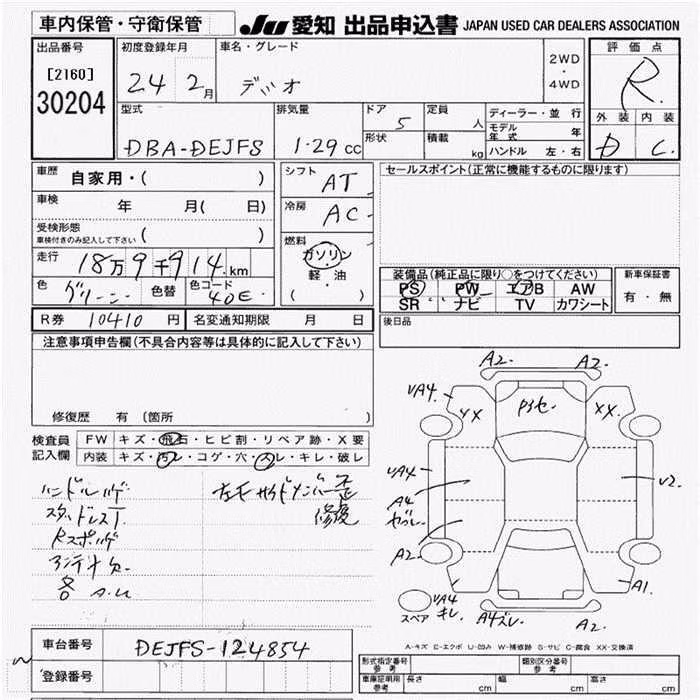 車内保管・守衛保管
JU 愛知 出品申込書 JAPAN USED CAR DEALERS ASSOCIATION
出品番号
[2160]
30204
初度登録年月
24 2月
車名・グレード
デミオ
2WD
・
4WD
評価点
R
外装 内装
D C
型式
DBA-DEJFS
排気量
1.29cc
ドア
5
形状
定員
人
積載
kg
ディーラー・並行
モデル年式 年
ハンドル 左・右
車歴 自家用・( )
車検 年 月( 日)
受検形態
車検付きのみ記入して下さい ( )
走行 18万9千914km
色 グリーン 色替 色コード 40E
R券 10410円 名変通知期限 月 日
シフト AT
冷房 AC
燃料
ガソリン
軽・油
( )
セールスポイント(正常に機能するものに限ります)
装備品(純正品に限り○をつけてください)
PS PW エアB AW
SR ナビ TV カワシート
新車保証書
有・無
後日品
注意事項申告欄(不具合内容等は具体的に記入して下さい)
修復歴 有(箇所
検査員記入欄
FW キズ・飛石・ヒビ割・リペア跡・X要
内装 キズ・汚レ・コゲ・穴・スレ・キレ・破レ
ハンドルハゲ
スタッドレス
アンテナ欠
各 A.U
修復
A2. A2.
UA4. XX P3セ XX.
UA4 A4 V2.
A2.
A1.
UA4 キレ. A4ズレ. A2.
スペア
A-キズ E-エクボ U-凹み W-補修跡 S-サビ C-腐食 XX-交換済
車台番号 DEJFS-124854
登録番号
形式指定番号 参考
類別区分番号 参考
車庫証明用 参考 長さ cm 幅 cm 高さ cm